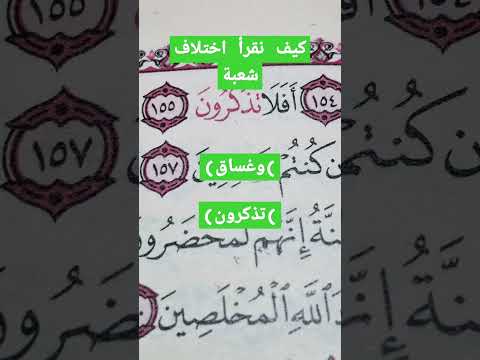 كيف نقرأ اختلاف
شعبة
١٥٤ أَفَلَا تَذَّكَّرُونَ ١٥٥
كُنتُمْ ١٥٧
)وغساق)
)تذكرون)
إِنَّهُمْ لَمُحْضَرُونَ
ٱللَّهِ ٱلْمُخْلَصِينَ